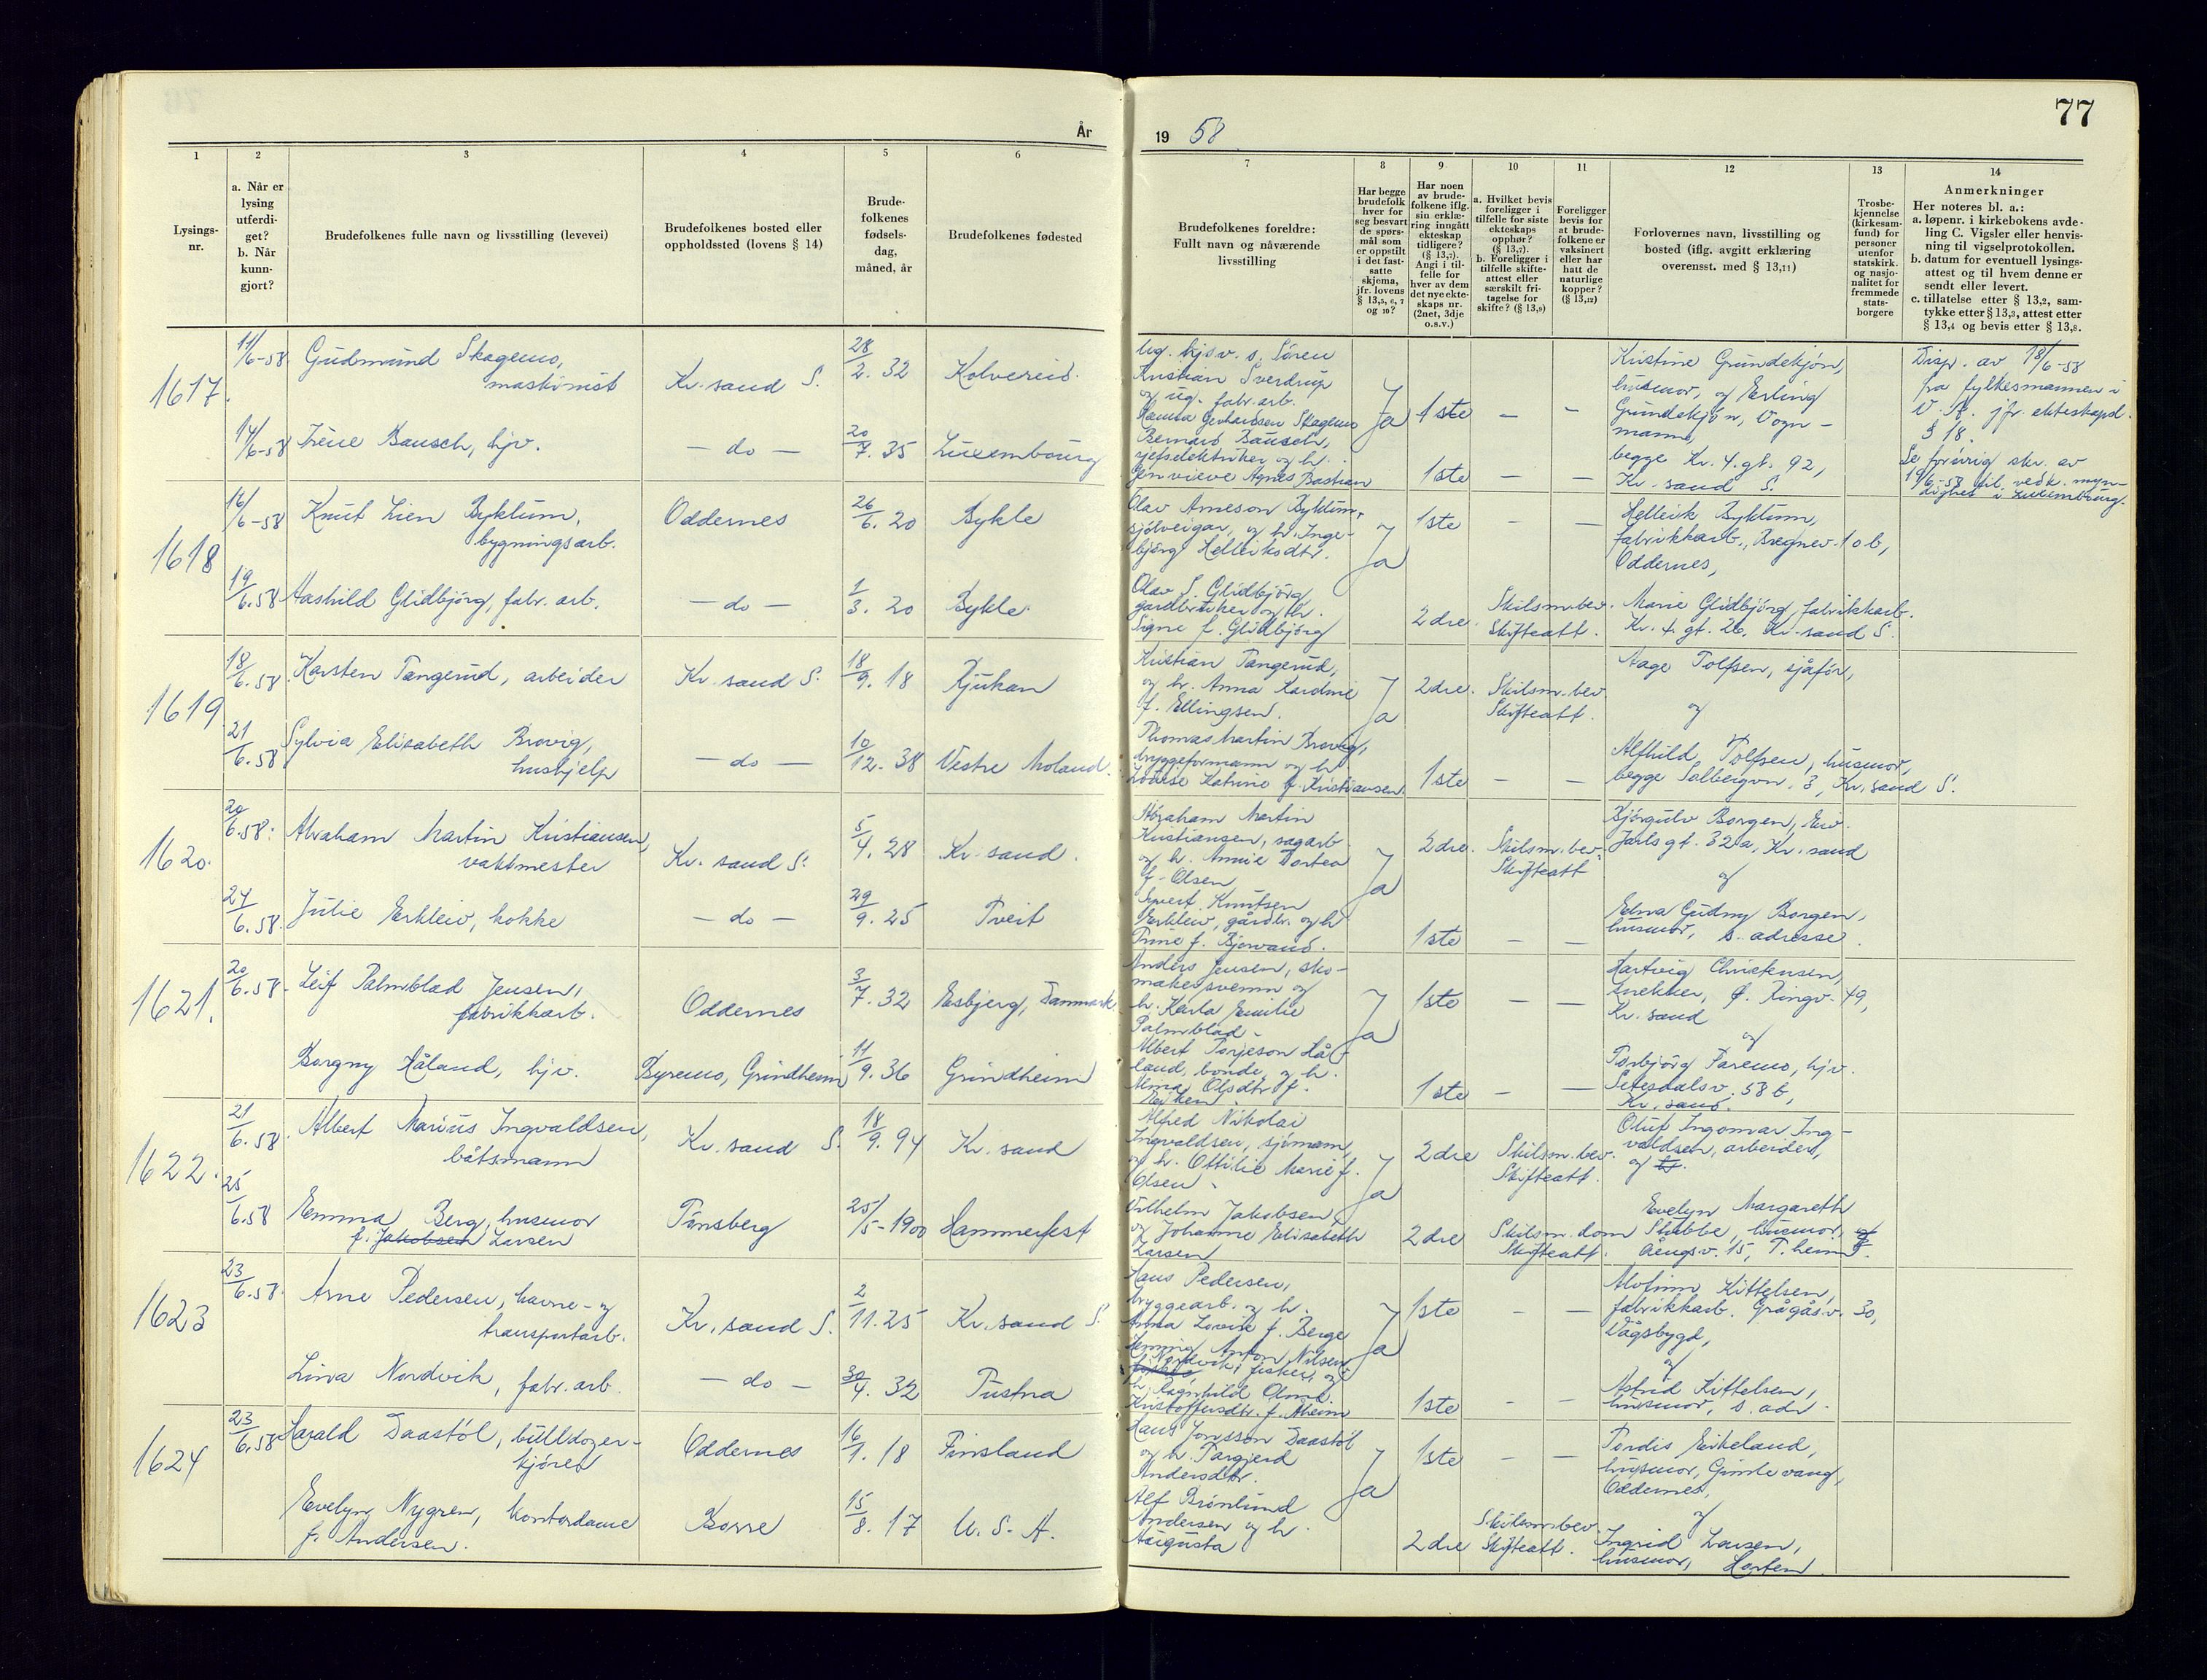 77
År 19 58
1
2
3
4
5
6
7
8
9
10
11
12
13
14
Lysings-
nr.
a. Når er
lysing
utferdi-
get?
b. Når
kunn-
gjort?
Brudefolkenes fulle navn og livsstilling (levevei)
Brudefolkenes bosted eller
oppholdssted (lovens § 14)
Brude-
folkenes
fødsels-
dag,
måned, år
Brudefolkenes fødested
Brudefolkenes foreldre:
Fullt navn og nåværende
livsstilling
Har begge
brudefolk
hver for
seg besvart
de spørs-
mål som
er oppstilt
i det fast-
satte
skjema,
jfr. lovens
§ 13,5, 6, 7
og 10?
Har noen
av brude-
folkene iflg.
sin erklæ-
ring inngått
ekteskap
tidligere?
(§ 13,7).
Angi i til-
felle for
hver av dem
det nye ekte-
skaps nr.
(2net, 3dje
o.s.v.)
a. Hvilket bevis
foreligger i
tilfelle for siste
ekteskaps
opphør?
(§ 13,7).
b. Foreligger i
tilfelle skifte-
attest eller
særskilt fri-
tagelse for
skifte? (§ 13,9)
Foreligger
bevis for
at brude-
folkene er
vaksinert
eller har
hatt de
naturlige
kopper?
(§ 13,12)
Forlovernes navn, livsstilling og
bosted (iflg. avgitt erklæring
overensst. med § 13,11)
Trosbe-
kjennelse
(kirkesam-
fund) for
personer
utenfor
statskirk.
og nasjo-
nalitet for
fremmede
stats-
borgere
Anmerkninger
Her noteres bl. a.:
a. løpenr. i kirkebokens avde-
ling C. Vigsler eller henvis-
ning til vigselprotokollen.
b. datum for eventuell lysings-
attest og til hvem denne er
sendt eller levert.
c. tillatelse etter § 13,2, sam-
tykke etter § 13,3, attest etter
§ 13,4 og bevis etter § 13,8.
1617.
11/6-58
Gudmund Skagemo,
maskinist
Kr. sand S.
28/2. 32
Kolvereid.
ug. hjv. s. Sören
Kristian Sverdrup
og ug. fabr. arb.
Skagemo
Ja
1ste
—
—
Kristine Grundekjön,
husmor, og Erling
Grundekjön, Vogn-
mann,
begge Kr. 4. gt. 92,
Kr. sand S.
Disp. av 18/6-58
fra fylkesmannen i
V. A. jfr. ekteskapsl.
§ 18.
Se forövrig skr. av
19/6-58 til vedk. myn-
dighet i Luxembourg.
14/6-58
Iréne Bausch, hjv.
— do —
20/7. 35
Luxembourg
Bernard Bausch,
sjefselektriker og h.
Genvieve Agnes Bastian
1ste
—
—
1618
16/6-58
Knut Lien Byklum,
bygningsarb.
Oddernes
26/6. 20
Bykle
Olav Arneson Byklum,
sjölveigar, og h. Inge-
björg Helleiksdtr.
Ja
1ste
—
—
Helleik Byklum,
fabrikkarb., Bregnev. 10 b,
Oddernes,
19/6.58
Aashild Glidbjörg, fabr. arb.
— do —
1/3. 20
Bykle
Olav S. Glidbjörg,
gardbruker og h.
Signe f. Glidbjörg
2dre.
Skilsm.bev.
Skifteatt.
Marie Glidbjörg, fabrikkarb.
Kr. 4. gt. 26, Kr. sand S.
1619
18/6.58
Karsten Tangerud, arbeider
Kr. sand S.
18/9. 18
Rjukan
Kristian Tangerud,
og h. Anna Karoline
f. Ellingsen.
Ja
2dre.
Skilsm.bev
Skifteatt.
Aage Tolfsen, sjåför,
og
21/6.58
Sylvia Elisabeth Brovig,
hushjelp
— do —
10/12. 38
Vestre Moland.
Thomas Martin Brovig,
bryggeformann og h.
Lovise Katrine f. Kristiansen.
1ste
—
—
Alfhild Tolfsen, husmor,
begge Solbergvn. 3, Kr. sand S.
1620.
20/6.58.
Abraham Martin Kristiansen,
vaktmester
Kr. sand S.
5/4. 28
Kr. sand.
Abraham Martin
Kristiansen, sagarb.
og h. Annie Dortea
f. Olsen
Ja
2dre.
Skilsm.bev.
Skifteatt
Björgulv Borgen, Eiv.
Jarls gt. 32a, Kr. sand
og
24/6.58.
Julie Erkleiv, kokke
— do —
29/9. 25
Tveit
Syvert Knutsen
Erkleiv, gårdbr. og h.
Trine f. Bjorvand.
1ste
—
—
Edna Gudny Borgen,
husmor, s. adresse.
1621.
20/6.58.
Leif Palmblad Jensen,
fabrikkarb.
Oddernes
3/7. 32
Esbjerg, Danmark
Anders Jensen, sko-
makersvenn og
h. Karla Emilie
Palmblad.
Ja
1ste
—
—
Hartvig Christensen,
snekker, Ø. Ringv. 49,
Kr. sand
og
Borgny Håland, hjv.
Byremo, Grindheim
11/9. 36
Grindheim
Albert Torjeson Hå-
land, bonde, og h.
Alma Olsdtr f.
1ste
—
—
Torbjörg Faremo, hjv.
Setesdalsv. 58 b,
Kr. sand.
1622.
21/6.58.
Albert Marius Ingvaldsen,
båtsmann
Kr. sand S.
18/9. 94
Kr. sand
Alfred Nikolai
Ingvaldsen, sjömann,
og h. Ottilie Marie f.
Olsen.
Ja
2dre
Skilsm.bev.
Skifteatt.
Oluf Ingomar Ing-
valdsen, arbeider,
og
25/6.58
Emma Berg, husmor
f. Jakobsen Larsen
Tönsberg
25/5-1900
Hammerfest
Vilhelm Jakobsen,
og Johanne Elisabeth
Larsen
2dre
Skilsm.dom
Skifteatt.
Evelyn Margareth
Stubbe, husmor,
Aengsv. 15, T.heim.
1623
23/6.58.
Arne Pedersen, havne- og
transportarb.
Kr. sand S.
2/11. 25
Kr. sand S.
Hans Pedersen,
bryggearb. og h.
Anna Lovise f. Berge
Ja
1ste
—
—
Alofinn Kittelsen,
fabrikkarb. Grågåsv. 30,
Vågsbygd,
og
Liva Nordvik, fabr. arb.
— do —
30/4. 32
Tustna
Henning Anton Nilsen
Nordvik, fisker, og
h. Ragnhild Oline
Kristoffersdtr. f. Aheim
1ste
—
—
Astrid Kittelsen,
husmor, s. adr.
1624
23/6.58
Harald Daastöl, bulldozer-
kjörer
Oddernes
16/1. 18
Finsland
Hans Jonsson Daastöl
og h. Targjerd
Andersdtr.
Ja
1ste
—
—
Tordis Eikeland,
husmor, Gimlevang,
Oddernes,
og
Evelyn Nygren, kontordame
f. Andersen.
Borre
15/8. 17
U. S. A.
Alf Brönlund
Andersen og h.
Augusta
2dre
Skilsm.bev.
Skifteatt.
Ingrid Larsen,
husmor, Horten